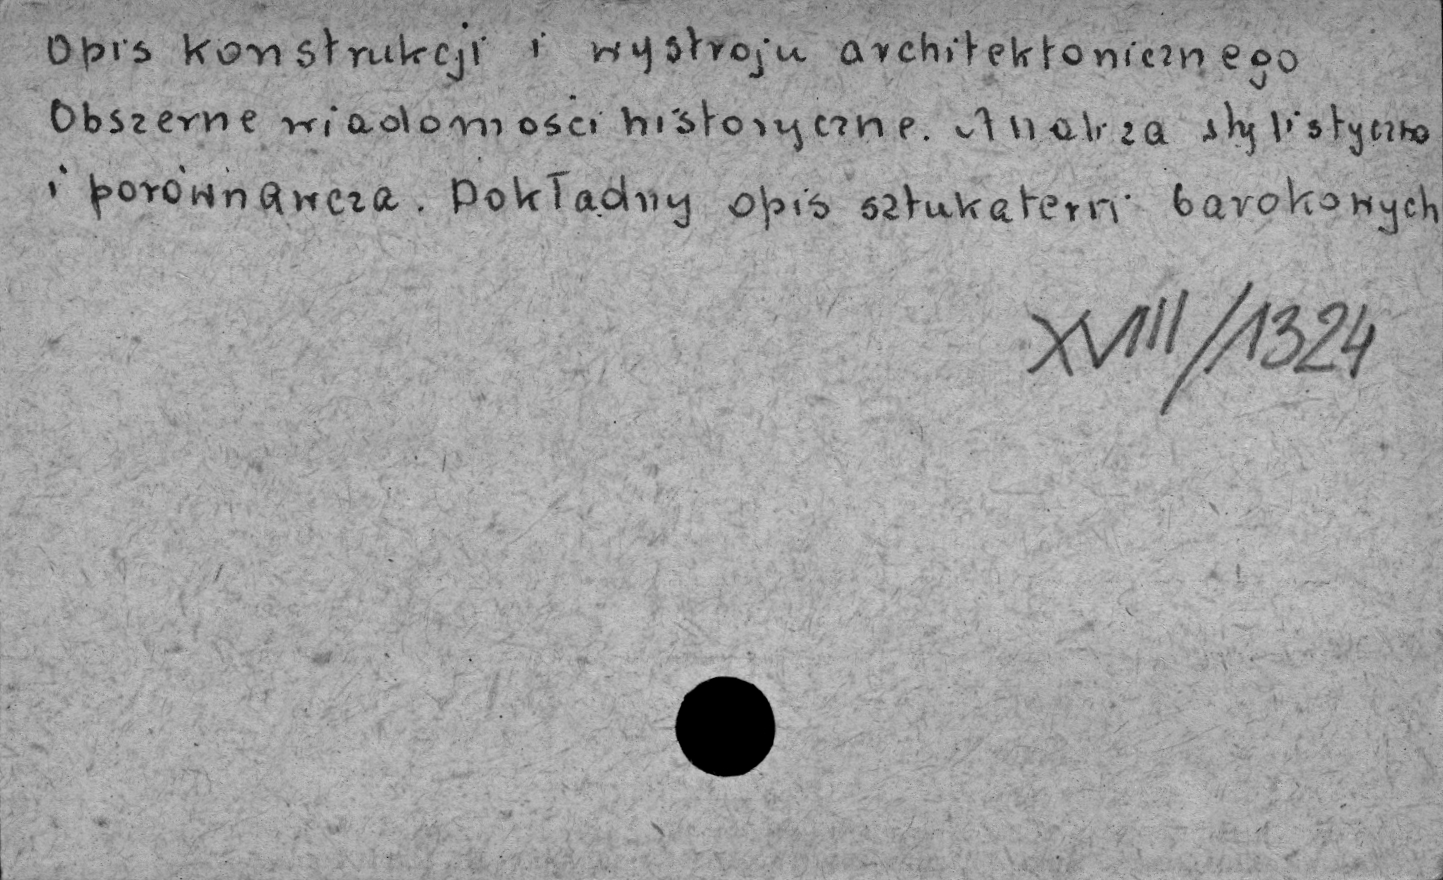 Opis konstrukcji i wystroju architektonicznego
Obszerne wiadomości historyczne. Analiza stylistyczna
i porównawcza. Dokładny opis sztukaterii barokowych
XVIII/1324